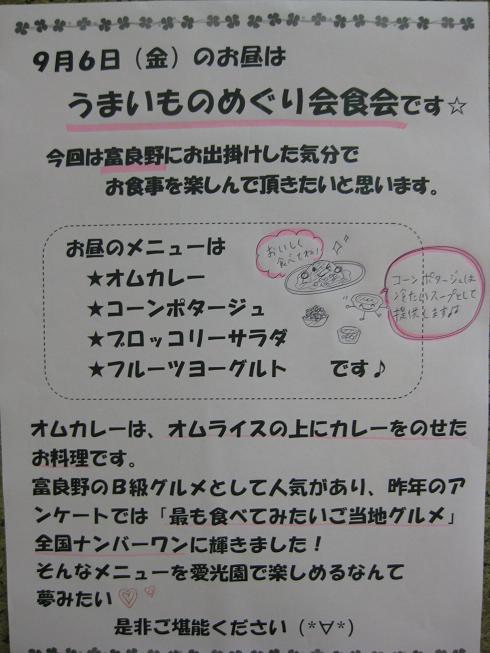 9月6日（金）のお昼は
うまいものめぐり会食会です☆
今回は富良野にお出掛けした気分で
お食事を楽しんで頂きたいと思います。
お昼のメニューは
★オムカレー
★コーンポタージュ
★ブロッコリーサラダ
★フルーツヨーグルト　　です♪
おいしく
食べてね!
コーンポタージュは
冷たいスープとして
提供します♪
オムカレーは、オムライスの上にカレーをのせた
お料理です。
富良野のB級グルメとして人気があり、昨年のア
ンケートでは「最も食べてみたいご当地グルメ」
全国ナンバーワンに輝きました！
そんなメニューを愛光園で楽しめるなんて
夢みたい♡♡
是非ご堪能ください（*´∀`*）